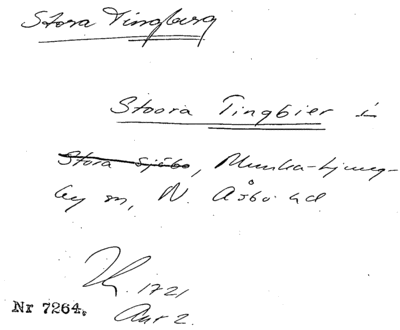 Stora Tingberg
Stoora Tingbier i
Stora Sjöbo, Munka-Ljung-
by sn, N. Åsbo hd
1721
Nr 7264.